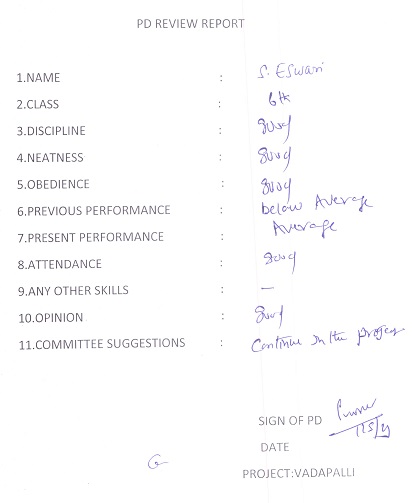 PD REVIEW REPORT
1.NAME : S. Eswari
2.CLASS : 6th
3.DISCIPLINE : good
4.NEATNESS : good
5.OBEDIENCE : good
6.PREVIOUS PERFORMANCE : below Average
7.PRESENT PERFORMANCE : Average
8.ATTENDANCE : good
9.ANY OTHER SKILLS : –
10.OPINION : good
11.COMMITTEE SUGGESTIONS : Continue in the Project
SIGN OF PD
DATE
PROJECT:VADAPALLI